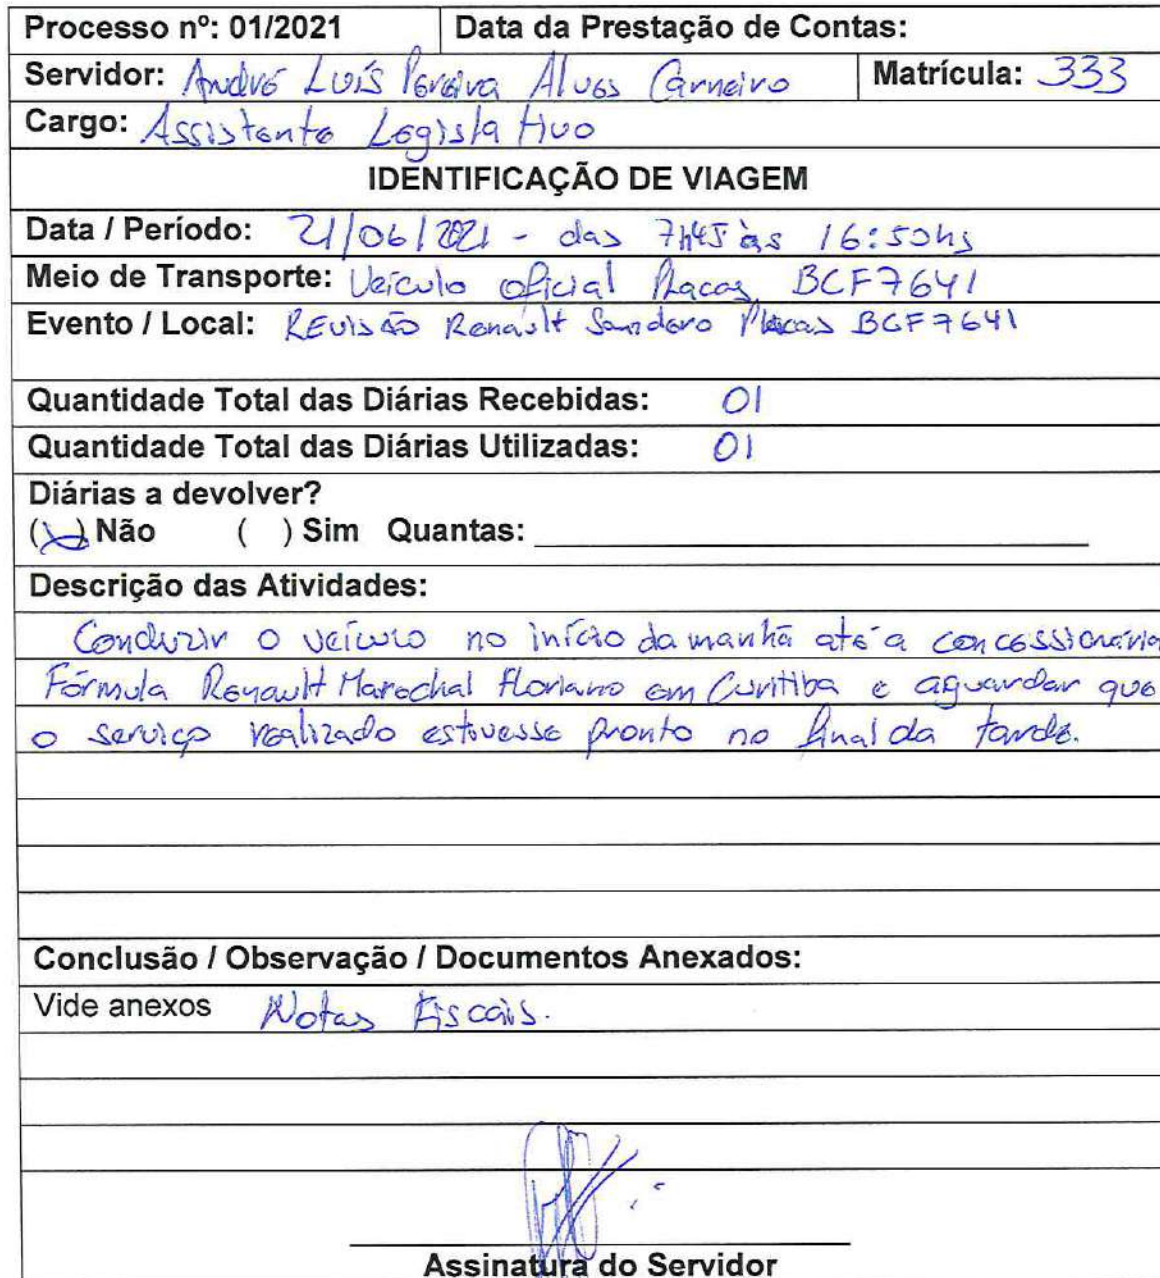 Processo nº: 01/2021 Data da Prestação de Contas:
Servidor: André Luís Pereira Alves Carneiro Matrícula: 333
Cargo: Assistente Legislativo
IDENTIFICAÇÃO DE VIAGEM
Data / Período: 21/06/2021 - das 7h45 às 16:50hs
Meio de Transporte: Veículo oficial Placas BCF7641
Evento / Local: REVISÃO Renault Sandero Placas BCF7641
Quantidade Total das Diárias Recebidas: 01
Quantidade Total das Diárias Utilizadas: 01
Diárias a devolver?
(x) Não ( ) Sim Quantas:
Descrição das Atividades:
Conduzir o veículo no início da manhã até a concessionária
Fórmula Renault Marechal Floriano em Curitiba e aguardar que
o serviço realizado estivesse pronto no final da tarde.
Conclusão / Observação / Documentos Anexados:
Vide anexos Notas Fiscais.
Assinatura do Servidor